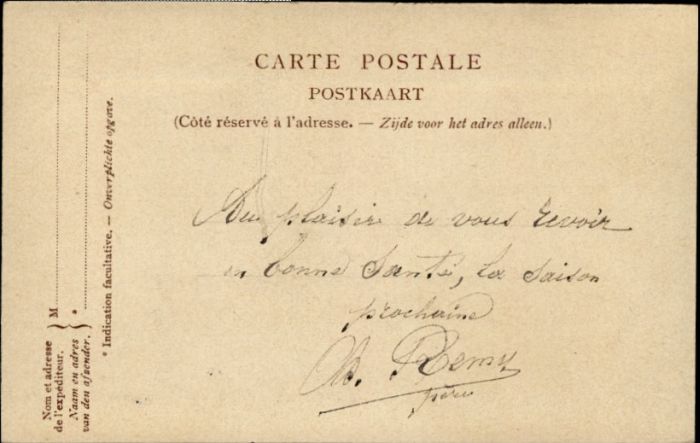 CARTE POSTALE
POSTKAART
(Côté réservé à l'adresse. — Zijde voor het adres alleen.)
Au plaisir de vous revoir
en bonne santé, la saison
prochaine
Remy
père
Nom et adresse
de l'expéditeur.
Naam en adres
van den afzender.
M
*
* Indication facultative. — Onverplichte opgave.